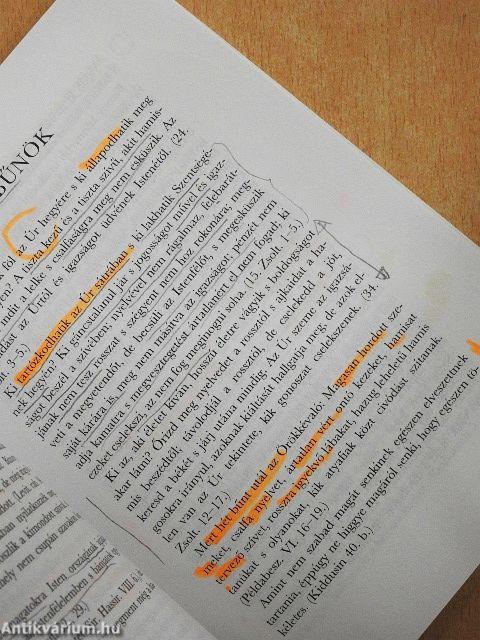 BŰNÖK
föl az Úr hegyére s ki állapodhatik meg
A tiszta kezű és a tiszta szívű, akit hamis-
ra nem indít a lelke s csalfaságra meg nem esküszik. Az
áldást az Úrtól és igazságot üdvének Istenétől. (24.
3–5.)
Ki tartózkodhatik az Úr sátrában s ki lakhatik Szentségé-
nek hegyén? Ki gáncsatlanul jár s jogosságot művel és igaz-
ságot beszél a szívében; nyelvével nem rágalmaz, felebarát-
jának nem tesz rosszat s szégyent nem hoz rokonára; meg-
veti a megvetendőt, de becsüli az Istenfélőt, s megesküszik
saját kárára is, meg nem másítva az igazságot; pénzét nem
adja kamatra s megvesztegetést ártatlannal el nem fogad; ki
ezeket cselekszi, az nem fog megingani soha. (15. Zsolt. 1–5.)
Ki az, aki életet kíván, hosszú életre vágyik s boldogságot
akar látni? Őrizd meg nyelvedet a rossztól s ajkaidat a ha-
mis beszédtől; távolodjál a rossztól, de cselekedd a jót,
keresd a békét s járj utána mindig. Az Úr szeme az igazsá-
gosokra irányul, azoknak kiáltását hallgatja meg, de azok el-
len van az Úr tekintete, kik gonoszat cselekszenek. (34.
Zsolt. 12–17.)
Mert hét bűnt utál az Örökkévaló: Magasan hordott sze-
meket, csalfa nyelvet, ártatlan vért ontó kezeket, hamisat
tervező szívet, rosszra igyekvő lábakat, hazug lehelletű hamis
tanúkat s olyanokat, kik anyaffak közt civódást szítanak.
(Példabesz. VI. 16–19.)
Amint nem szabad magát senkinek egészen elveszettnek
tartania, éppúgy ne higgye magáról senki, hogy egészen tö-
kéletes. (Kiddusin 40. b.)
Antikvárium.hu